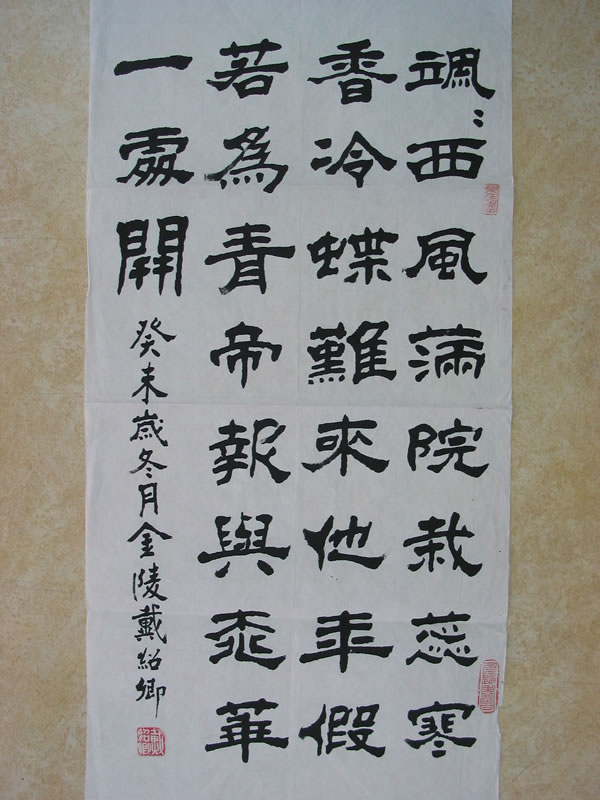 颯〻西風滿院栽蕊寒
香冷蝶難來他年假
若為青帝報與桃華
一處開
癸未歲冬月金陵戴紹卿